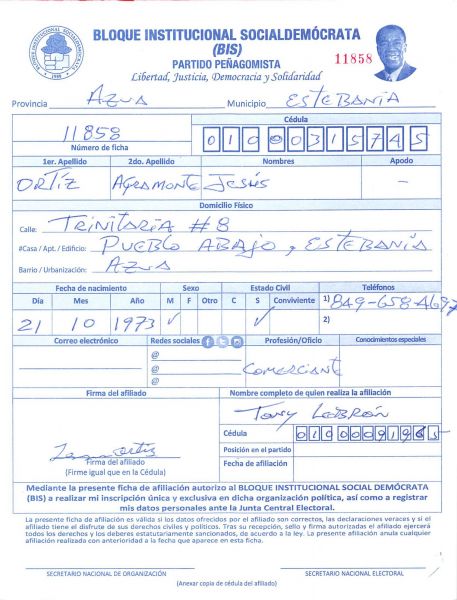 BLOQUE INSTITUCIONAL SOCIALDEMÓCRATA
(BIS)
PARTIDO PEÑAGOMISTA
11858
Libertad, Justicia, Democracia y Solidaridad
Provincia AZUA Municipio ESTEBANÍA
11858
Número de ficha
Cédula
01000315745
1er. Apellido 2do. Apellido Nombres Apodo
ORTÍZ AGRAMONTE JESÚS —
Domicilio Físico
Calle: TRINITARIA #8
#Casa / Apt. / Edificio: PUEBLO ABAJO, ESTEBANÍA
Barrio / Urbanización: AZUA
Fecha de nacimiento Sexo Estado Civil Teléfonos
Día Mes Año M F Otro C S Conviviente 1) 849-658-4697
21 10 1973 ✓ ✓ 2)
Correo electrónico Redes sociales Profesión/Oficio Conocimientos especiales
@
@ COMERCIANTE
@
Firma del afiliado Nombre completo de quien realiza la afiliación
TONY LEBRÓN
Cédula
Posición en el partido
Fecha de afiliación
Firma del afiliado
(Firme igual que en la Cédula)
Mediante la presente ficha de afiliación autorizo al BLOQUE INSTITUCIONAL SOCIAL DEMÓCRATA
(BIS) a realizar mi inscripción única y exclusiva en dicha organización política, así como a registrar
mis datos personales ante la Junta Central Electoral.
La presente ficha de afiliación es válida si los datos ofrecidos por el afiliado son correctos, las declaraciones veraces y si el
afiliado tiene el disfrute de sus derechos civiles y políticos. Tras su recepción, sello y firma autorizadas el afiliado ejercerá
todos los derechos y los deberes estatutariamente sancionados, de acuerdo a la ley. La presente afiliación anula cualquier
afiliación realizada con anterioridad a la fecha que aparece en esta ficha.
SECRETARIO NACIONAL DE ORGANIZACIÓN SECRETARIO NACIONAL ELECTORAL
(Anexar copia de cédula del afiliado)